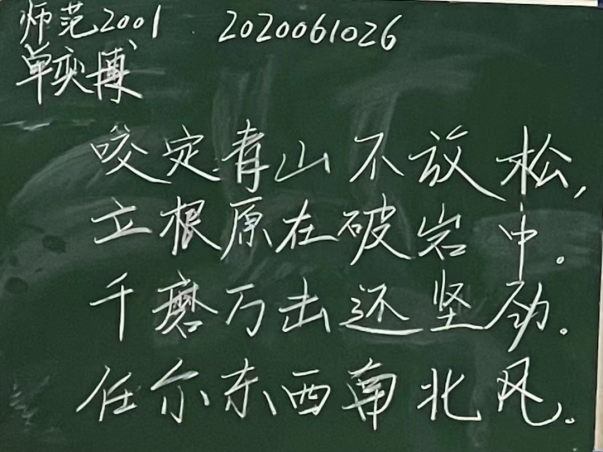 师范2001 2020061026
单奕博
咬定青山不放松,
立根原在破岩中。
千磨万击还坚劲。
任尔东西南北风。